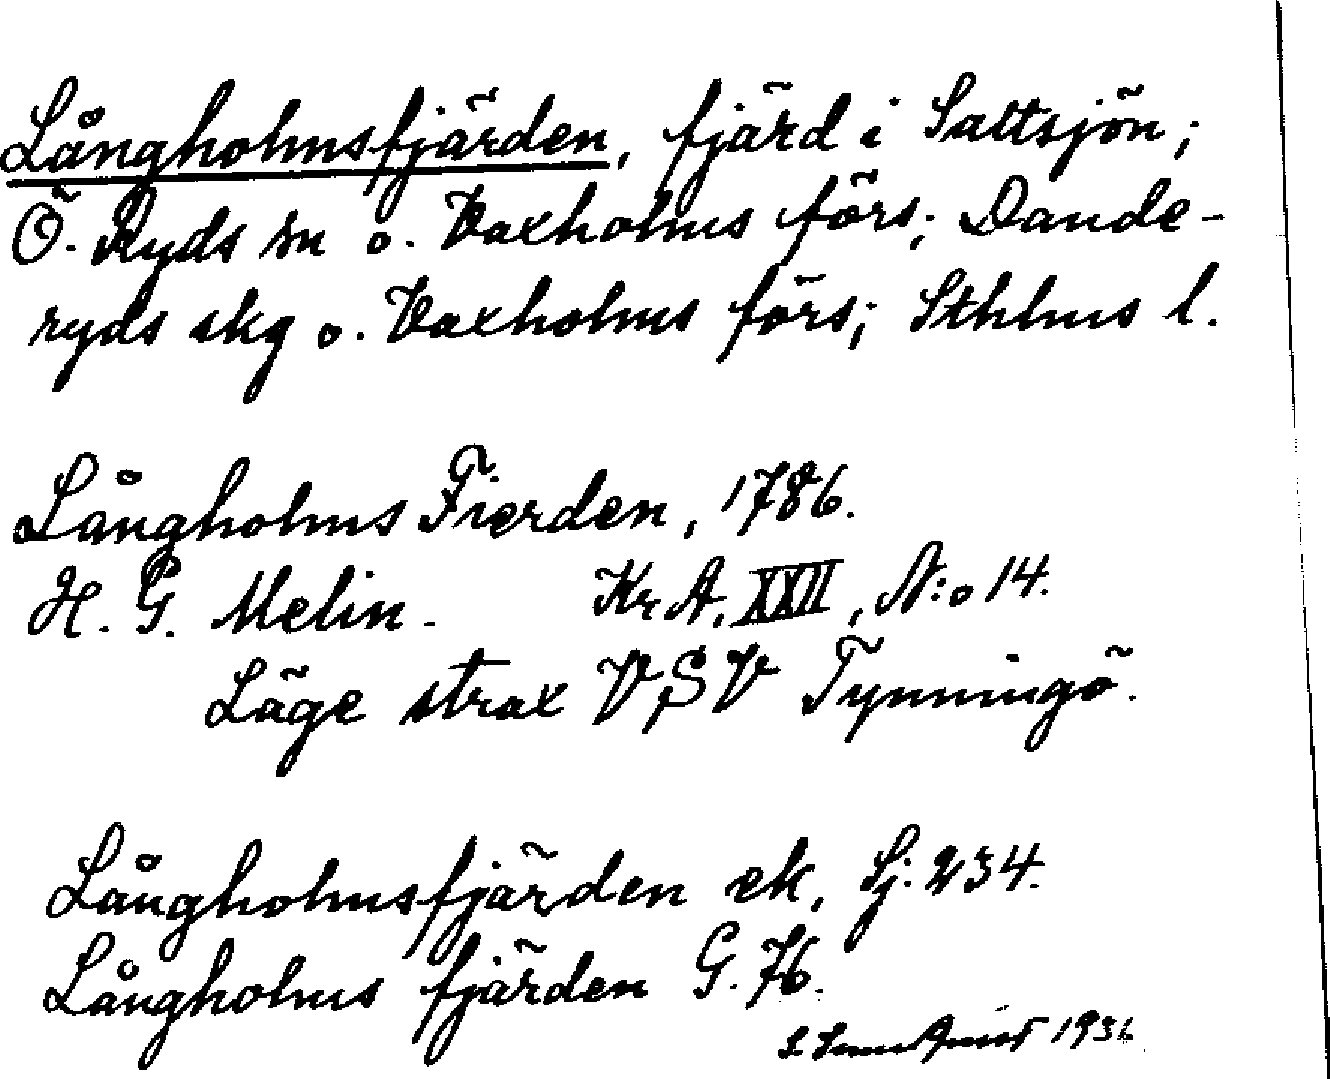 Långholmsfjärden, fjärd i Saltsjön;
Ö. Ryds sn o. Vaxholms förs; Dande-
ryds skg o. Vaxholms förs; Sthlms l.
Långholms Fierden, 1786.
H. G. Melin. Kr A, XXII, N:o 14.
Läge strax VSV Tynningö.
Långholmsfjärden ek, Sj. 234.
Långholms fjärden G. 76.
S. 1936